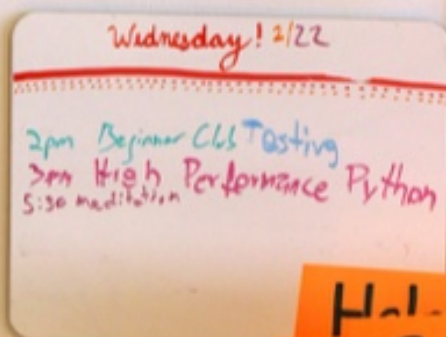 Wednesday! 2/22
2pm Beginner Testing
3pm High Performance Python
5:30 meditation